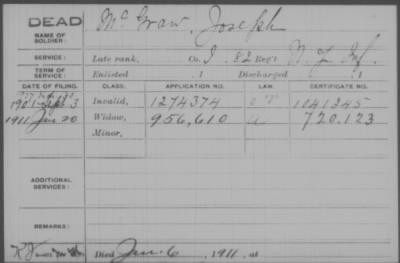 DEAD Mc Graw, Joseph
NAME OF SOLDIER:
SERVICE: Late rank, Co. I, 82 Reg't N.Y. Inf.
TERM OF SERVICE: Enlisted , 1 Discharged , 1
DATE OF FILING. CLASS. APPLICATION NO. LAW. CERTIFICATE NO.
Invalid, 1274374 1041245
1911 Jan 20 Widow, 956,610 720.123
Minor,
ADDITIONAL SERVICES:
REMARKS:
Died Jan. 6, 1911, at